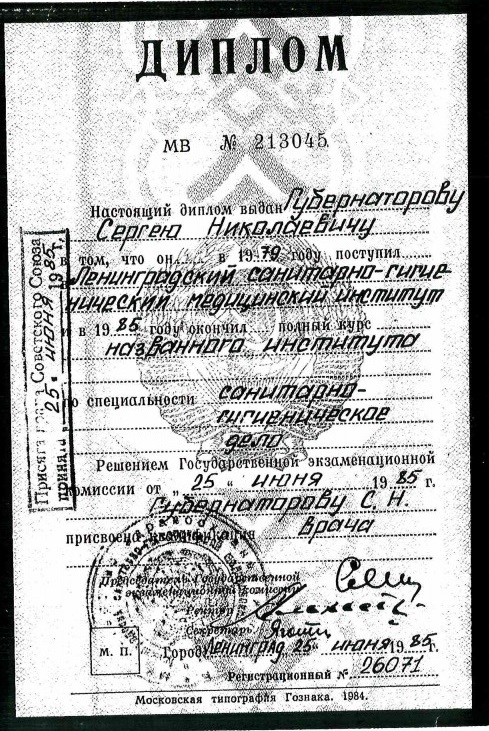 ДИПЛОМ
МВ № 213045
Настоящий диплом выдан Губернаторову
Сергею Николаевичу
в том, что он в 1979 году поступил
в Ленинградский санитарно-гигие-
нический медицинский институт
и в 1985 году окончил полный курс
названного института
по специальности санитарно-
гигиеническое
дело
Решением Государственной экзаменационной
комиссии от „25“ июня 1985 г.
Губернаторову С. Н.
присвоена квалификация врача
Председатель Государственной
экзаменационной комиссии
Ректор
Секретарь
М. П.
Город Ленинград „25“ июня 1985 г.
Регистрационный № 26071
Московская типография Гознака. 1984.
Присяга врача Советского Союза
принята 25 июня 1985 г.